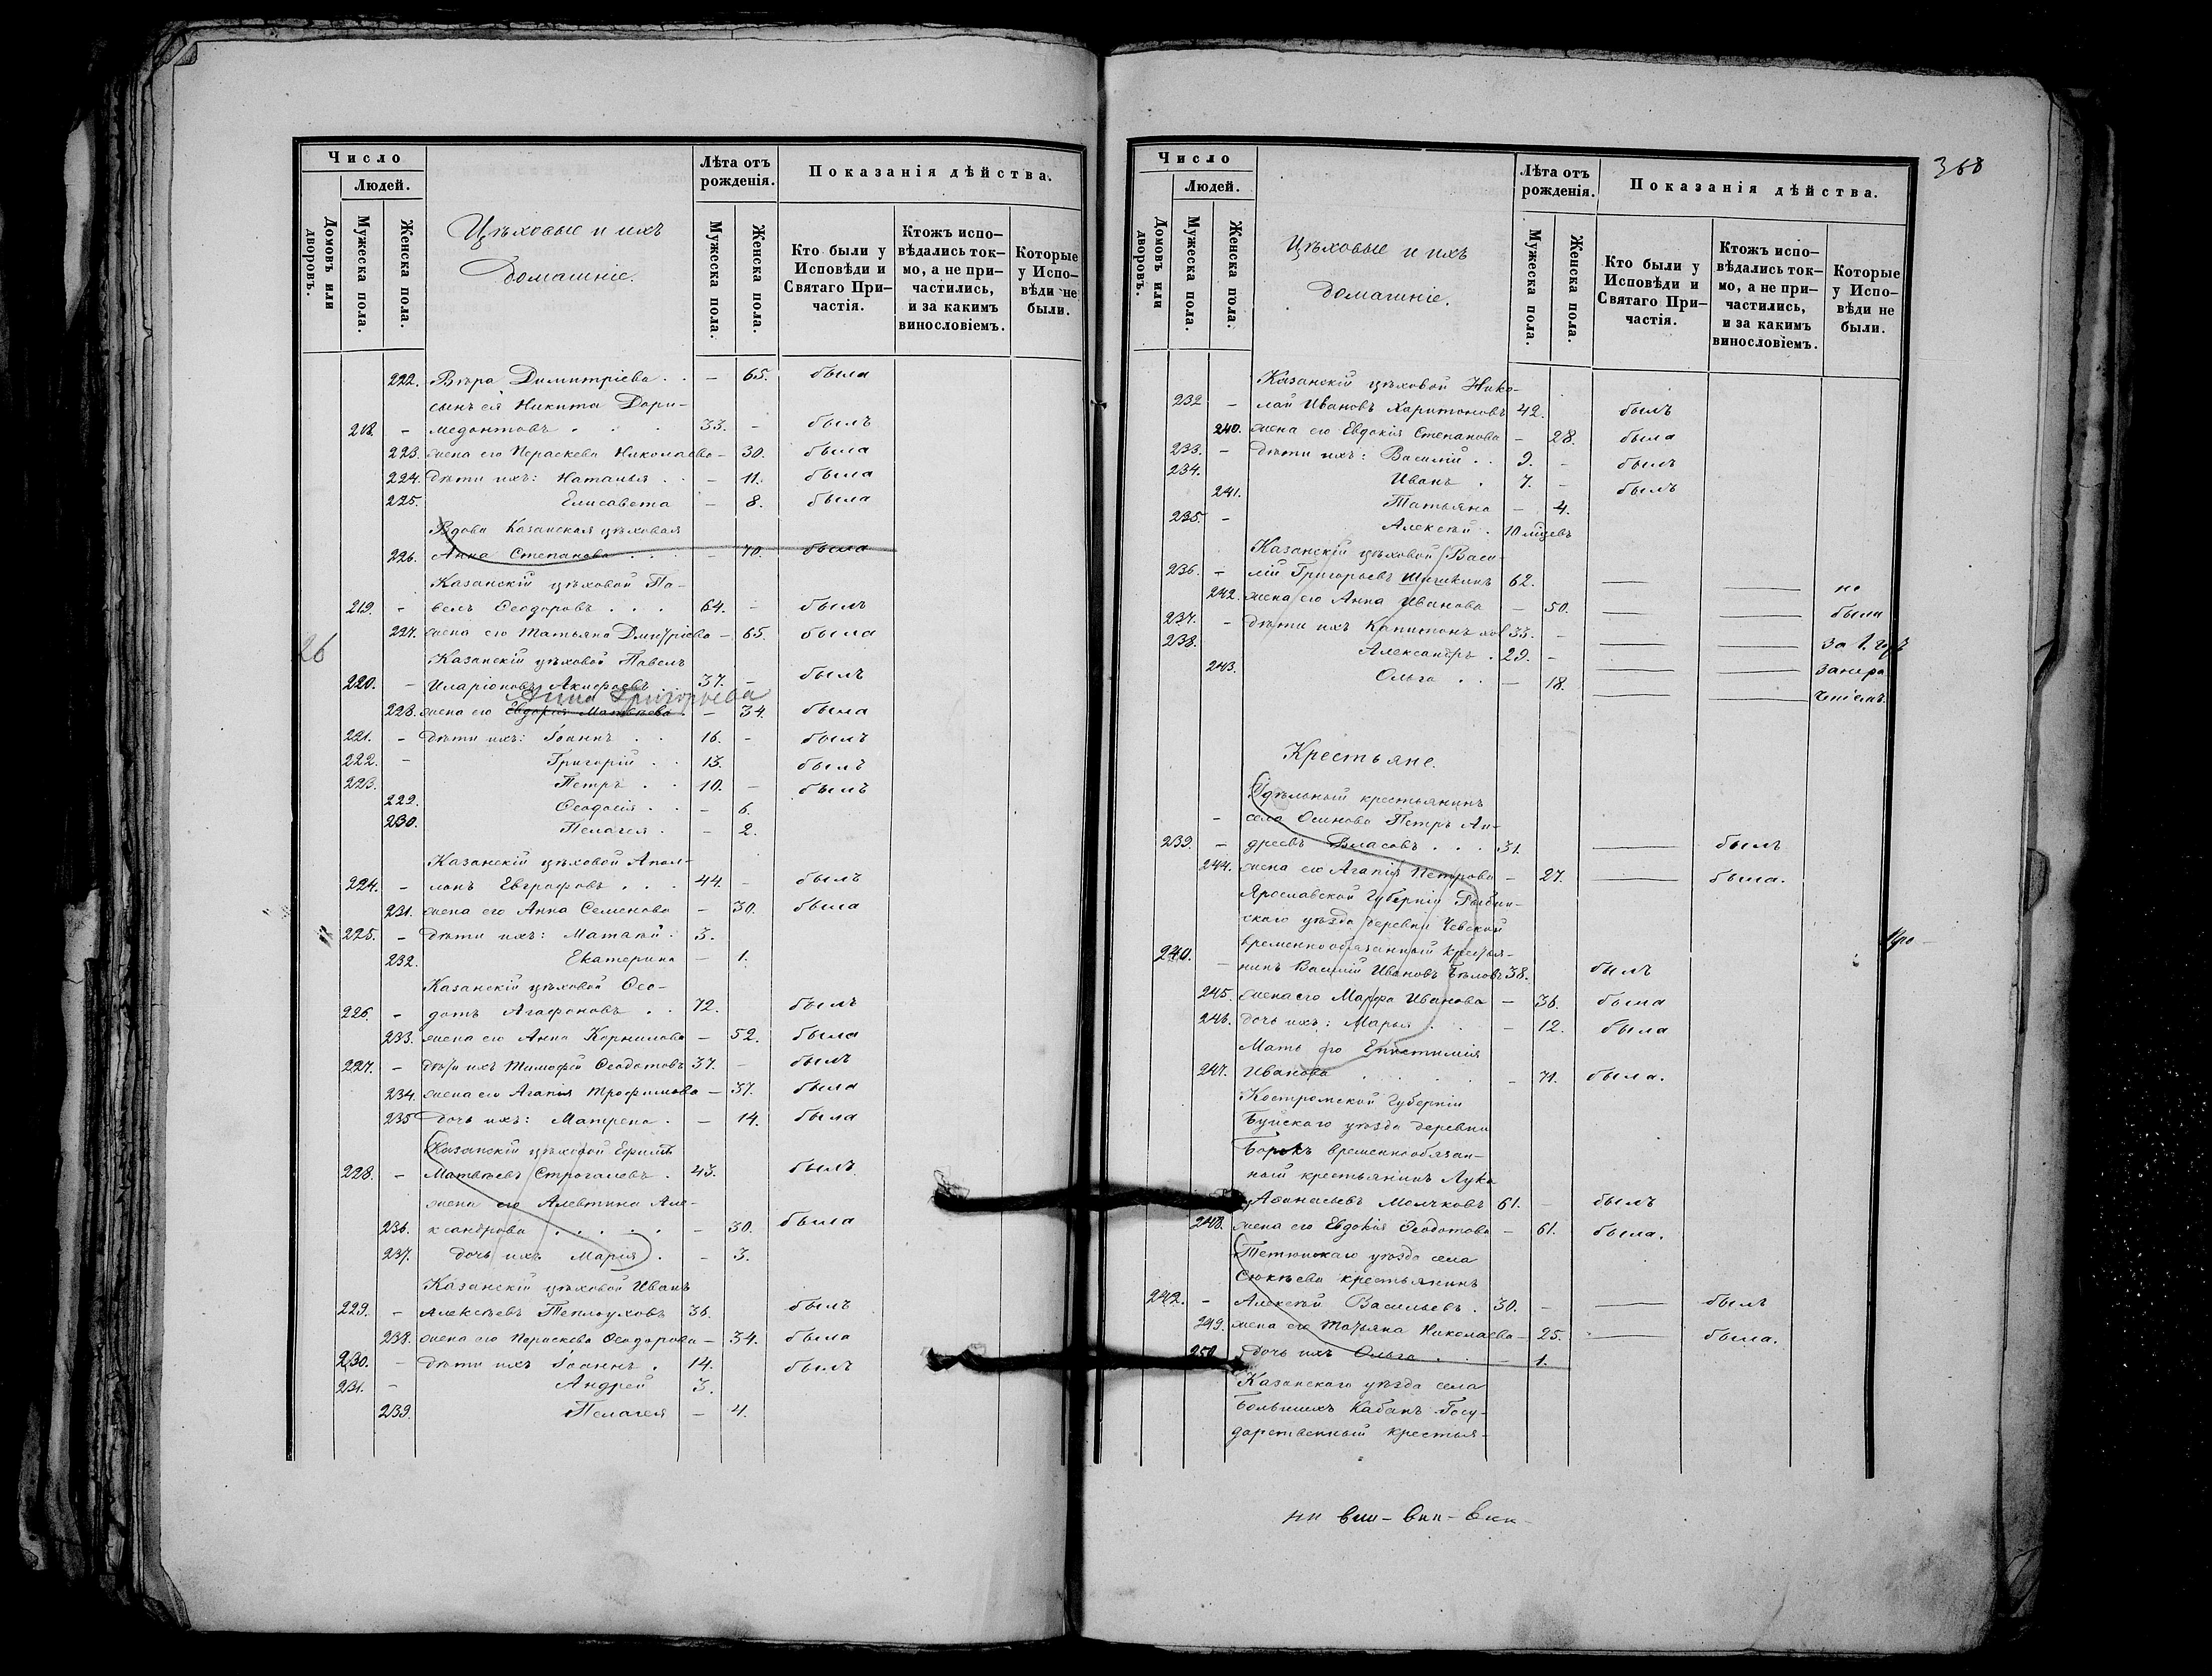 Число
Людей.
Домовъ или дворовъ.
Мужеска пола.
Женска пола.
Цѣховые и ихъ
домашніе.
Лѣта отъ рожденія.
Мужеска пола.
Женска пола.
Показанія дѣйства.
Кто были у Исповѣди и Святаго Причастія.
Ктожъ исповѣдались токмо, а не причастились, и за какимъ винословіемъ.
Которые у Исповѣди не были.
222. Вѣра Димитріева . . – 65. была
сынъ ея Никита Дори-
218. – медонтовъ . . . 33. – былъ
223. жена его Параскева Николаева – 30. была
224. дѣти ихъ: Наталья . . – 11. была
225. Елисавета – 8. была
Вдова Казанская цѣховая
226. Анна Степанова . . . – 70. была
Казанскій цѣховой Па-
219. – велъ Ѳеодоровъ . . . 64. – былъ
227. жена его Татьяна Дмитріева – 65. была
26
Казанскій цѣховой Павелъ
220. – Иларіоновъ Акифьевъ 37. – былъ
Анна Григорьева
228. жена его Евдокія Матвѣева . – 34. была
221. – дѣти ихъ: Іоаннъ . . 16. – былъ
222. – Григорій . . 13. былъ
223. Петръ . . 10. – былъ
229. Ѳеодосія . . – 6.
230. Пелагея . – 2.
Казанскій цѣховой Апол-
224. – лонъ Евграфовъ . . . 44. – былъ
231. жена его Анна Семенова – 30. была
225. – дѣти ихъ: Матвѣй . 3.
232. Екатерина – 1.
Казанскій цѣховой Ѳео-
226. – дотъ Агафоновъ . . 72. былъ
233. жена его Анна Корнилова – 52. была
227. – дѣти ихъ Тимофей Ѳеодотовъ 37. – былъ
234. жена его Агапія Трофимова – 37. была
235 дочь ихъ: Матрена . – 14. была
Казанскій цѣховой Ефимъ
228. – Матвѣевъ Строгалевъ . 43. былъ
жена его Алевтина Але-
236. ксандрова . . . . – 30. была
237. дочь ихъ Марія . – 3.
Казанскій цѣховой Иванъ
229. – Алексѣевъ Теплоуховъ 36. былъ
238. жена его Параскева Ѳеодорова – 34. была
230. – дѣти ихъ Іоаннъ . 14. былъ
231. – Андрей 3.
239. Пелагея – 4.
368
Число
Людей.
Домовъ или дворовъ.
Мужеска пола.
Женска пола.
Цѣховые и ихъ
домашніе.
Лѣта отъ рожденія.
Мужеска пола.
Женска пола.
Показанія дѣйства.
Кто были у Исповѣди и Святаго Причастія.
Ктожъ исповѣдались токмо, а не причастились, и за какимъ винословіемъ.
Которые у Исповѣди не были.
Казанскій цѣховой Нико-
232 – лай Ивановъ Харитоновъ 42. былъ
240. жена его Евдокія Степанова – 28. была
233. – дѣти ихъ: Василій . . 9. – былъ
234. Иванъ . 7. – былъ
241. Татьяна – 4.
235. – Алексѣй . 10 мѣсцевъ
Казанскій цѣховой Васи-
236. – лій Григорьевъ Шишкинъ 62. не
242. жена его Анна Иванова – 50. были
237. – дѣти ихъ Капитонъ хол 33. –
238. Александръ . 29. –
243. Ольга . . – 18.
Крестьяне.
Удѣльный крестьянинъ
– села Осиново Петръ Ан-
239. – дреевъ Власовъ . . . 31. былъ
244. жена его Агапія Петрова – 27. была.
Ярославской Губерніи Рыбин-
скаго уѣзда деревни Чевской
240. временнообязанный крестья-
– нинъ Василій Ивановъ Бѣловъ 38. былъ
245. жена его Марфа Иванова – 36. была
246. дочь ихъ: Марья . . – 12. была
Мать его Епистимія
247. Иванова . . . . – 71. была.
Костромской Губерніи
Буйскаго уѣзда деревни
Борокъ временнообязан-
ный крестьянинъ Лука
Афанасьевъ Молчковъ 61. – былъ
248. жена его Евдокія Ѳеодотова – 61. была.
Тетюшскаго уѣзда села
Сюкѣева крестьянинъ
242. – Алексѣй Васильевъ . 30. – былъ
249. жена его Татьяна Николаева – 25. была.
250 дочь ихъ Ольга . . – 1.
Казанскаго уѣзда села
Большихъ Кабанъ Госу-
дарственный крестья-